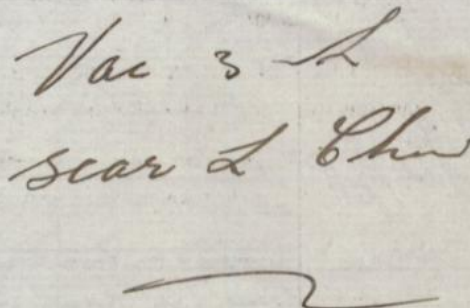 Vac 3 L
scar L Chin